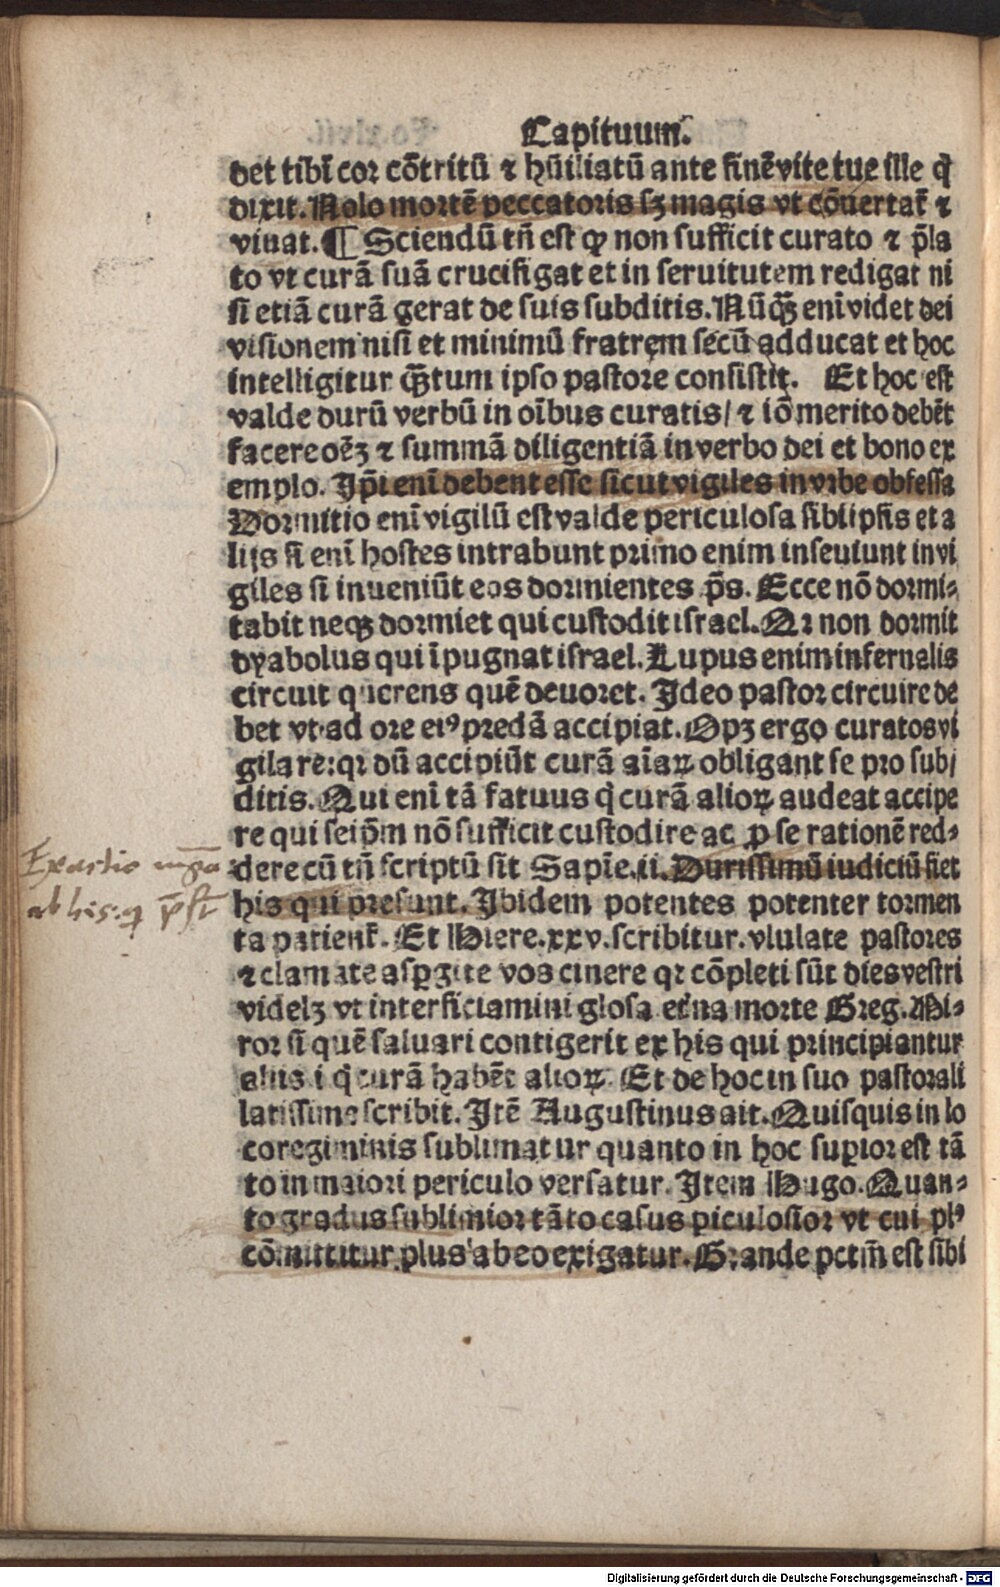 Capituum.
det tibi cor cōtritū ⁊ hūiliatū ante finē vite tue ille q̄
dixit. Nolo mortē peccatoris sꝫ magis vt cōuertat᷑ ⁊
viuat. ¶ Sciendū tn̄ est ꝙ non sufficit curato ⁊ p̄la
to vt curā suā crucifigat et in seruitutem redigat ni
si etiā curā gerat de suis subditis. Nūqꝫ enī videt dei
visionem nisi et minimū fratrem secū adducat et hoc
intelligitur qꝫtum ipso pastore consistit. Et hoc est
valde durū verbū in oībus curatis/ ⁊ iō merito debēt
facere oēꝫ ⁊ summā diligentiā in verbo dei et bono ex
emplo. Ip̄i enī debent esse sicut vigiles in vrbe obsessa
Dormitio enī vigilū est valde periculosa sibi ipsis et a
lijs si enī hostes intrabunt primo enim inseuiunt in vi
giles si inueniūt eos dormientes p̄s. Ecce nō dormi-
tabit neqꝫ dormiet qui custodit israel. Qꝛ non dormit
dyabolus qui īpugnat israel. Lupus enim infernalis
circuit querens quē deuoret. Ideo pastor circuire de
bet vt ad ore eiꝰ predā accipiat. Opꝫ ergo curatos vi
gilare: qꝛ dū accipiūt curā aīaꝝ obligant se pro sub/
ditis. Qui enī tā fatuus q̇ curā alioꝝ audeat accipe
re qui seip̄m nō sufficit custodire ac ꝓ se rationē red-
dere cū tn̄ scriptū sit Sapīe. ii. Durissimū iudiciū fiet
his qui presunt. Ibidem potentes potenter tormen
ta patient᷑. Et Hiere. xxv. scribitur. vlulate pastores
⁊ clamate aspgite vos cinere qꝛ cōpleti sūt dies vestri
videlꝫ vt interficiamini glosa eterna morte Greg. Mi-
ror si quē saluari contigerit ex his qui principiantur
aliis i q̇ curā habēt alioꝝ. Et de hoc in suo pastorali
latissime scribit. Itē Augustinus ait. Quisquis in lo
co regiminis sublimatur quanto in hoc supior est tā
to in maiori periculo versatur. Item Hugo. Quan-
to gradus sublimior tāto casus piculosior vt cui plꝰ
cōmittitur plus ab eo exigatur. Grande pctm̄ est sibi
Exactio
ab his: q p̄st
Digitalisierung gefördert durch die Deutsche Forschungsgemeinschaft - DFG